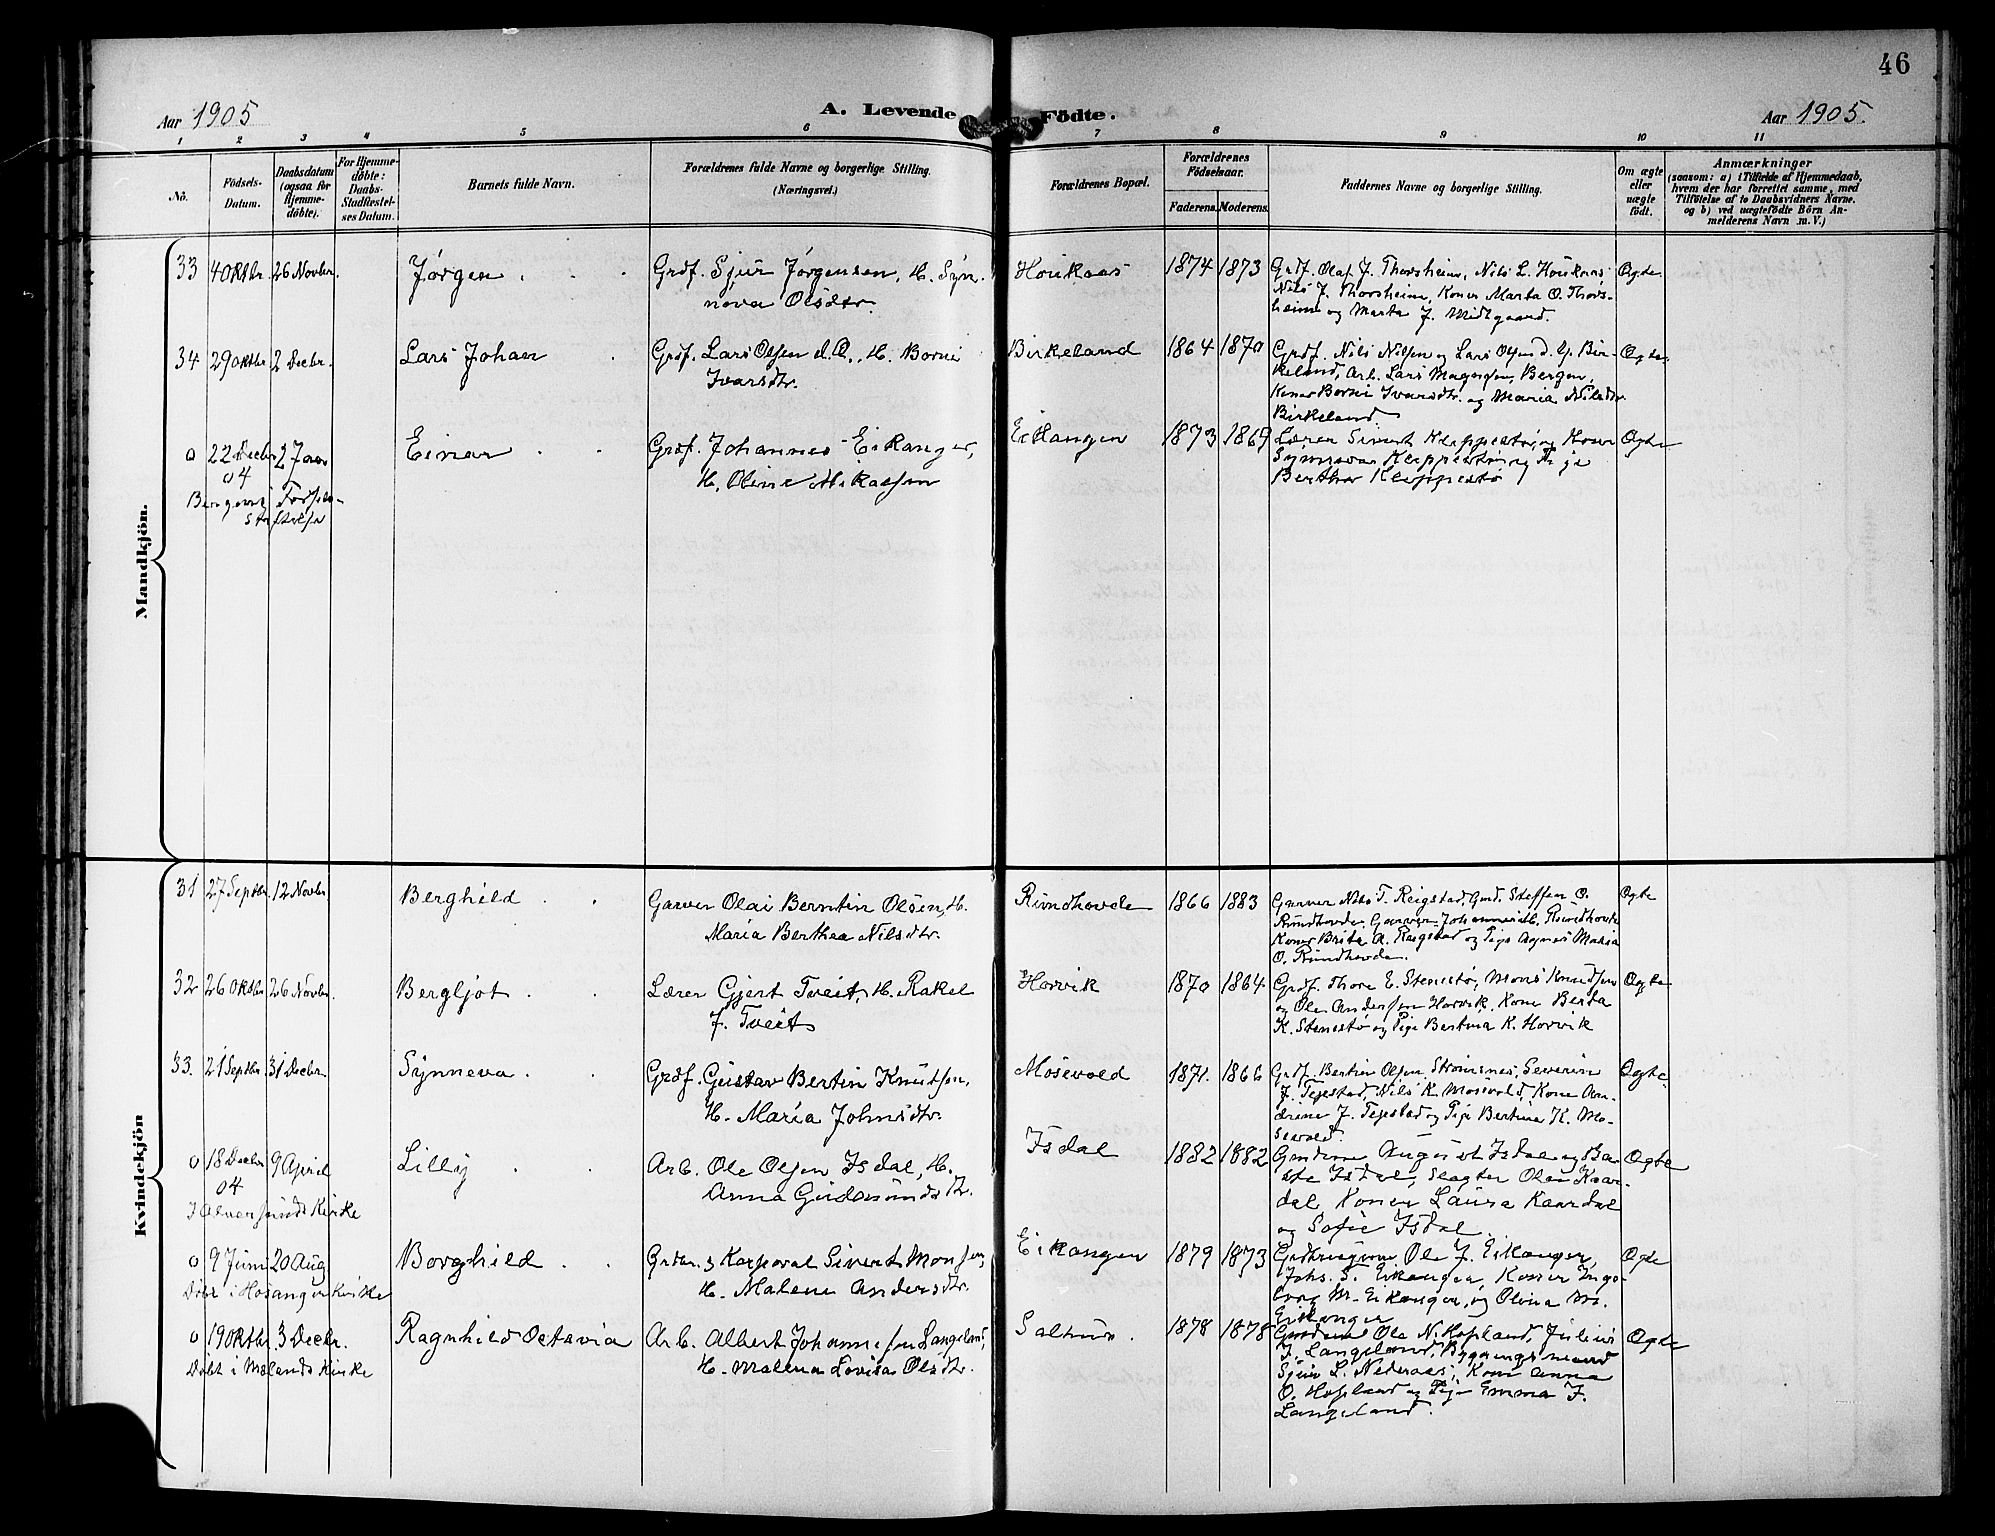 46
Aar 1905
A. Levende Födte.
Aar 1905.
1 2 3 4 5 6 7 8 9 10 11
No.
Födsels-
Datum.
Daabsdatum
(ogsaa for
Hjemme-
döbte).
For Hjemme-
döbte:
Daabs-
Stadfæstel-
ses Datum.
Barnets fulde Navn.
Forældrenes fulde Navne og borgerlige Stilling.
(Næringsvei.)
Forældrenes Bopæl.
Forældrenes
Födselsaar.
Faderens. Moderens.
Faddernes Navne og borgerlige Stilling.
Om ægte
eller
uægte
födt.
Anmærkninger
(saasom: a) i Tilfælde af Hjemmedaab,
hvem der har forrettet samme, med
Tilföielse af to Daabsvidners Navne.
og b) ved uægtefödte Börn An-
melderens Navn m. V.)
Mandkjön.
33 4 Oktbr. 26 Novbr. Jørgen Grdf. Sjur Jørgensen, H. Syn-
nova Olsdtr.
Houkaas 1874 1873 Grdf. Olaf J. Thorsheim, Nils L. Houkaas
Nils J. Thorsheim, Koner Marta O. Thors-
heim og Marta J. Midtgaard.
Ægte
34 29 Oktbr. 2 Decbr. Lars Johan Grdf. Lars Olsen d. Æ., H. Borni
Ivarsdtr.
Birkeland 1864 1870 Grdf. Nils Nilsen og Lars Olsen d. Y. Bir-
keland, Arb. Lars Magnesen, Bergen,
Koner Borni Ivarsdtr. og Maria Nilsdtr.
Birkeland.
Ægte
0 22 Decbr 2 Janr Einar Grdf. Johannes Eikanger,
04
H. Oline Mikalsen
Eikanger 1873 1869 Lærer Sivert Kleppestø, og Kone
Synneva Kleppestø og Pige
Berthe Kleppestø
Ægte
Kvindekjön
31 27 Septbr. 12 Novbr Berghild Garver Olai Berntin Olsen, H.
Maria Berthea Nilsdtr.
Rundhovde 1866 1883 Garver Nils T. Reigstad, Gmd. Steffen O.
Rundhovde, Garver Johannes M. Rundhovde
Koner Brita A. Reigstad og Pige Agnes Maria
O. Rundhovde.
Ægte
32 26 Oktbr 26 Novbr. Bergljot Lærer Gjert Tveit, H. Rakel
J. Tveit
Horvik 1870 1864 Grdf. Thore E. Stenestø, Mons Knudsen
og Ole Andersen Horvik, Kone Berta
K. Stenestø og Pige Bertina K. Horvik
Ægte
33. 21 Septbr. 31 Decbr. Synneva Grdf. Gustav Bertin Knutsen,
H. Maria Johnsdtr.
Mosevold 1871. 1866 Grdf. Bertin Olsen Strømsnes, Severin
J. Tejestad, Nils K. Mosevold, Kone An-
drine J. Tejestad og Pige Bertina K. Mo-
sevold.
Ægte
0 18 Decbr 9 April Lilly Arb. Ole Olsen Isdal, H.
04
Anna Gudmundsdtr.
I Alversunds Kirke
Isdal 1882 1882 Gmdene August Isdal og Ba-
ste Isdal, Slagter Olai Kvar-
dal, Koner Laura Kvardal
og Sofie Isdal.
Ægte
0 9 Juni 20 Aug Borghild Grdbr. & Korporal Sivert Monsen,
H. Malene Andersdtr.
Døbt i Hosanger Kirke
Eikanger 1879 1873 Grdbrugerne Ole J. Eikanger,
Johs. S. Eikanger, Koner Inge-
borg M. Eikanger, og Olina M.
Eikanger
Ægte
0 19 Oktbr. 3 Decbr. Ragnhild Octavia Arb. Albert Johannesen Langeland,
H. Malena Lovisa Olsdtr.
Døbt i Mælands Kirke
Salhus. 1878 1878 Gmdene Ole N. Hopland, Julius
J. Langeland, Bygningsmand
Sjur L. Nedreaas, Kone Anna
O. Hopland og Pige Emma J.
Langeland.
Ægte